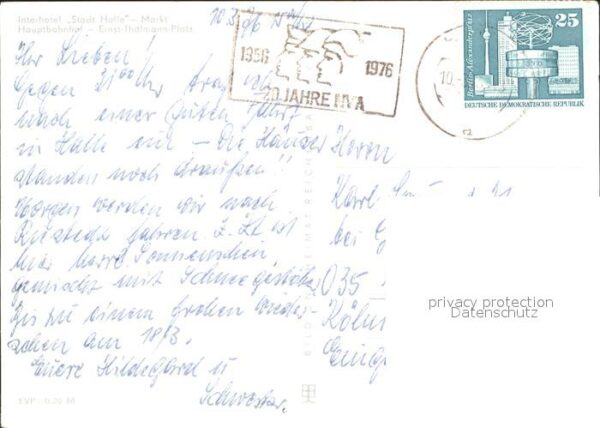 Interhotel „Stadt Halle" – Markt
Hauptbahnhof – Ernst-Thälmann-Platz
10.3.76
1956 1976
20 JAHRE NVA
25
Berlin-Alexanderplatz
DEUTSCHE DEMOKRATISCHE REPUBLIK
Ihr Lieben!
Gegen 21⁰⁰ Uhr traf ich
nach einer guten Fahrt
in Halle ein – Die Häuser
standen noch draußen!!
Morgen werden wir nach
fahren. Z. Zt ist
hier Sonnenschein,
gemischt mit Schneegestöber
Bis zu einem frohen Wieder-
sehen am 18/3.
Eure Hildegard u
Schwester.
Herrn
Karl
bei G
035
Köln
Eing
privacy protection
Datenschutz
BILD
REICHENBA
EVP